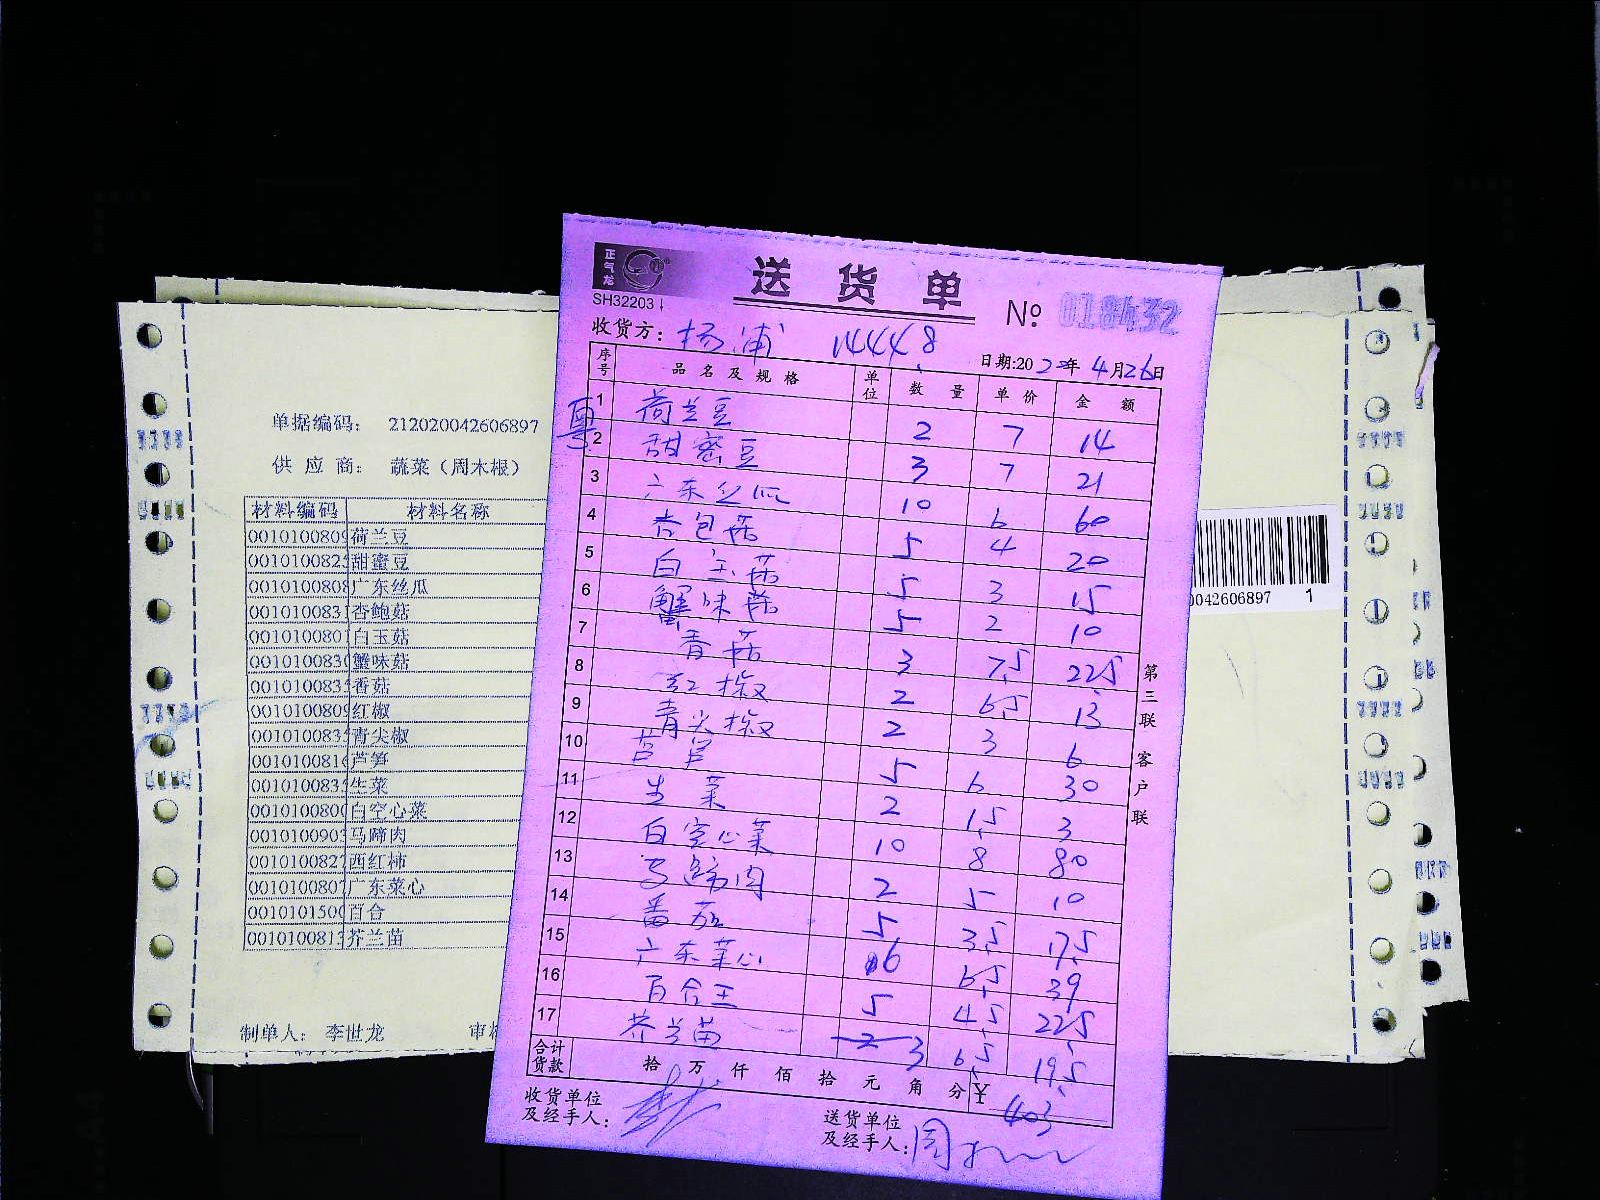 正气龙
送货单
SH32203
№ 018432
收货方: 杨浦 14448
日期:2022年4月26日
序号 品名及规格 单位 数量 单价 金额
粤
1 荷兰豆 2 7 14
2 甜密豆 3 7 21
3 广东丝瓜 10 6 60
4 杏包菇 5 4 20
5 白玉菇 5 3 15
6 蟹味菇 5 2 10
7 香菇 3 7.5 22.5
8 红椒 2 6.5 13
9 青尖椒 2 3 6
10 芦笋 5 6 30
11 生菜 2 1.5 3
12 白空心菜 10 8 80
13 马蹄肉 2 5 10
14 番茄 5 3.5 17.5
15 广东菜心 6 6.5 39
16 百合王 5 4.5 22.5
17 芥兰苗 3 6.5 19.5
合计货款 拾万仟佰拾元角分 ¥ 403
收货单位
及经手人:
送货单位
及经手人: 周
第三联 客户联
单据编码: 212020042606897
供应商: 蔬菜(周木根)
材料编码 材料名称
0010100809 荷兰豆
001010082 甜蜜豆
0010100808 广东丝瓜
001010083 杏鲍菇
001010080 白玉菇
001010083 蟹味菇
001010083 香菇
0010100809 红椒
001010083 青尖椒
001010081 芦笋
001010083 生菜
001010080 白空心菜
001010090 马蹄肉
001010082 西红柿
001010080 广东菜心
001010150 百合
001010081 芥兰苗
制单人: 李世龙
审
0042606897 1